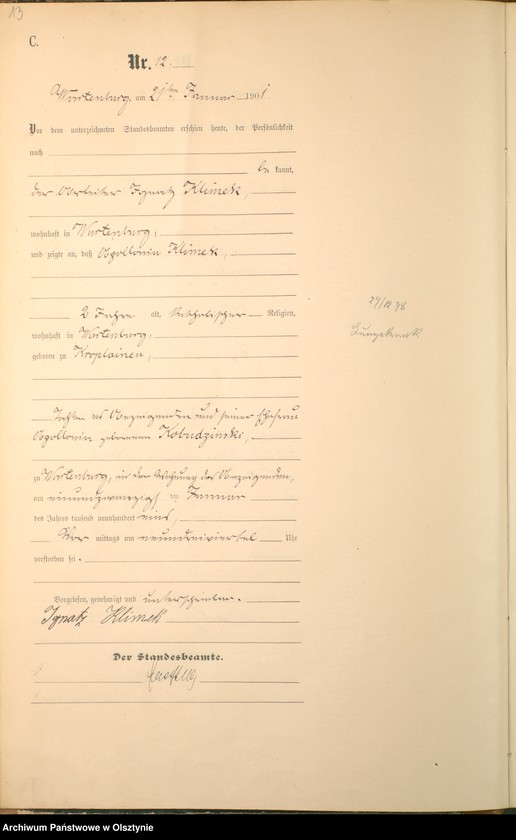 13
C.
Nr. 12.
Wartenburg, am 21ten Januar 1901.
Vor dem unterzeichneten Standesbeamten erschien heute, der Persönlichkeit
nach
be kannt,
der Arbeiter Ignatz Klimek,
wohnhaft in Wartenburg,
und zeigte an, daß Apollonia Klimek,
2 Jahre alt, katholischer Religion,
wohnhaft in Wartenburg,
geboren zu Kroplainen,
Tochter des Anzeigenden und seiner Ehefrau
Apollonia geborenen Kobudzinski,
zu Wartenburg, in der Wohnung des Anzeigenden,
am einundzwanzigsten Januar
des Jahres tausend neunhundert eins,
Vor mittags um neundreiviertel Uhr
verstorben sei.
Vorgelesen, genehmigt und unterschrieben.
Ignatz Klimek
Der Standesbeamte.
Archiwum Państwowe w Olsztynie